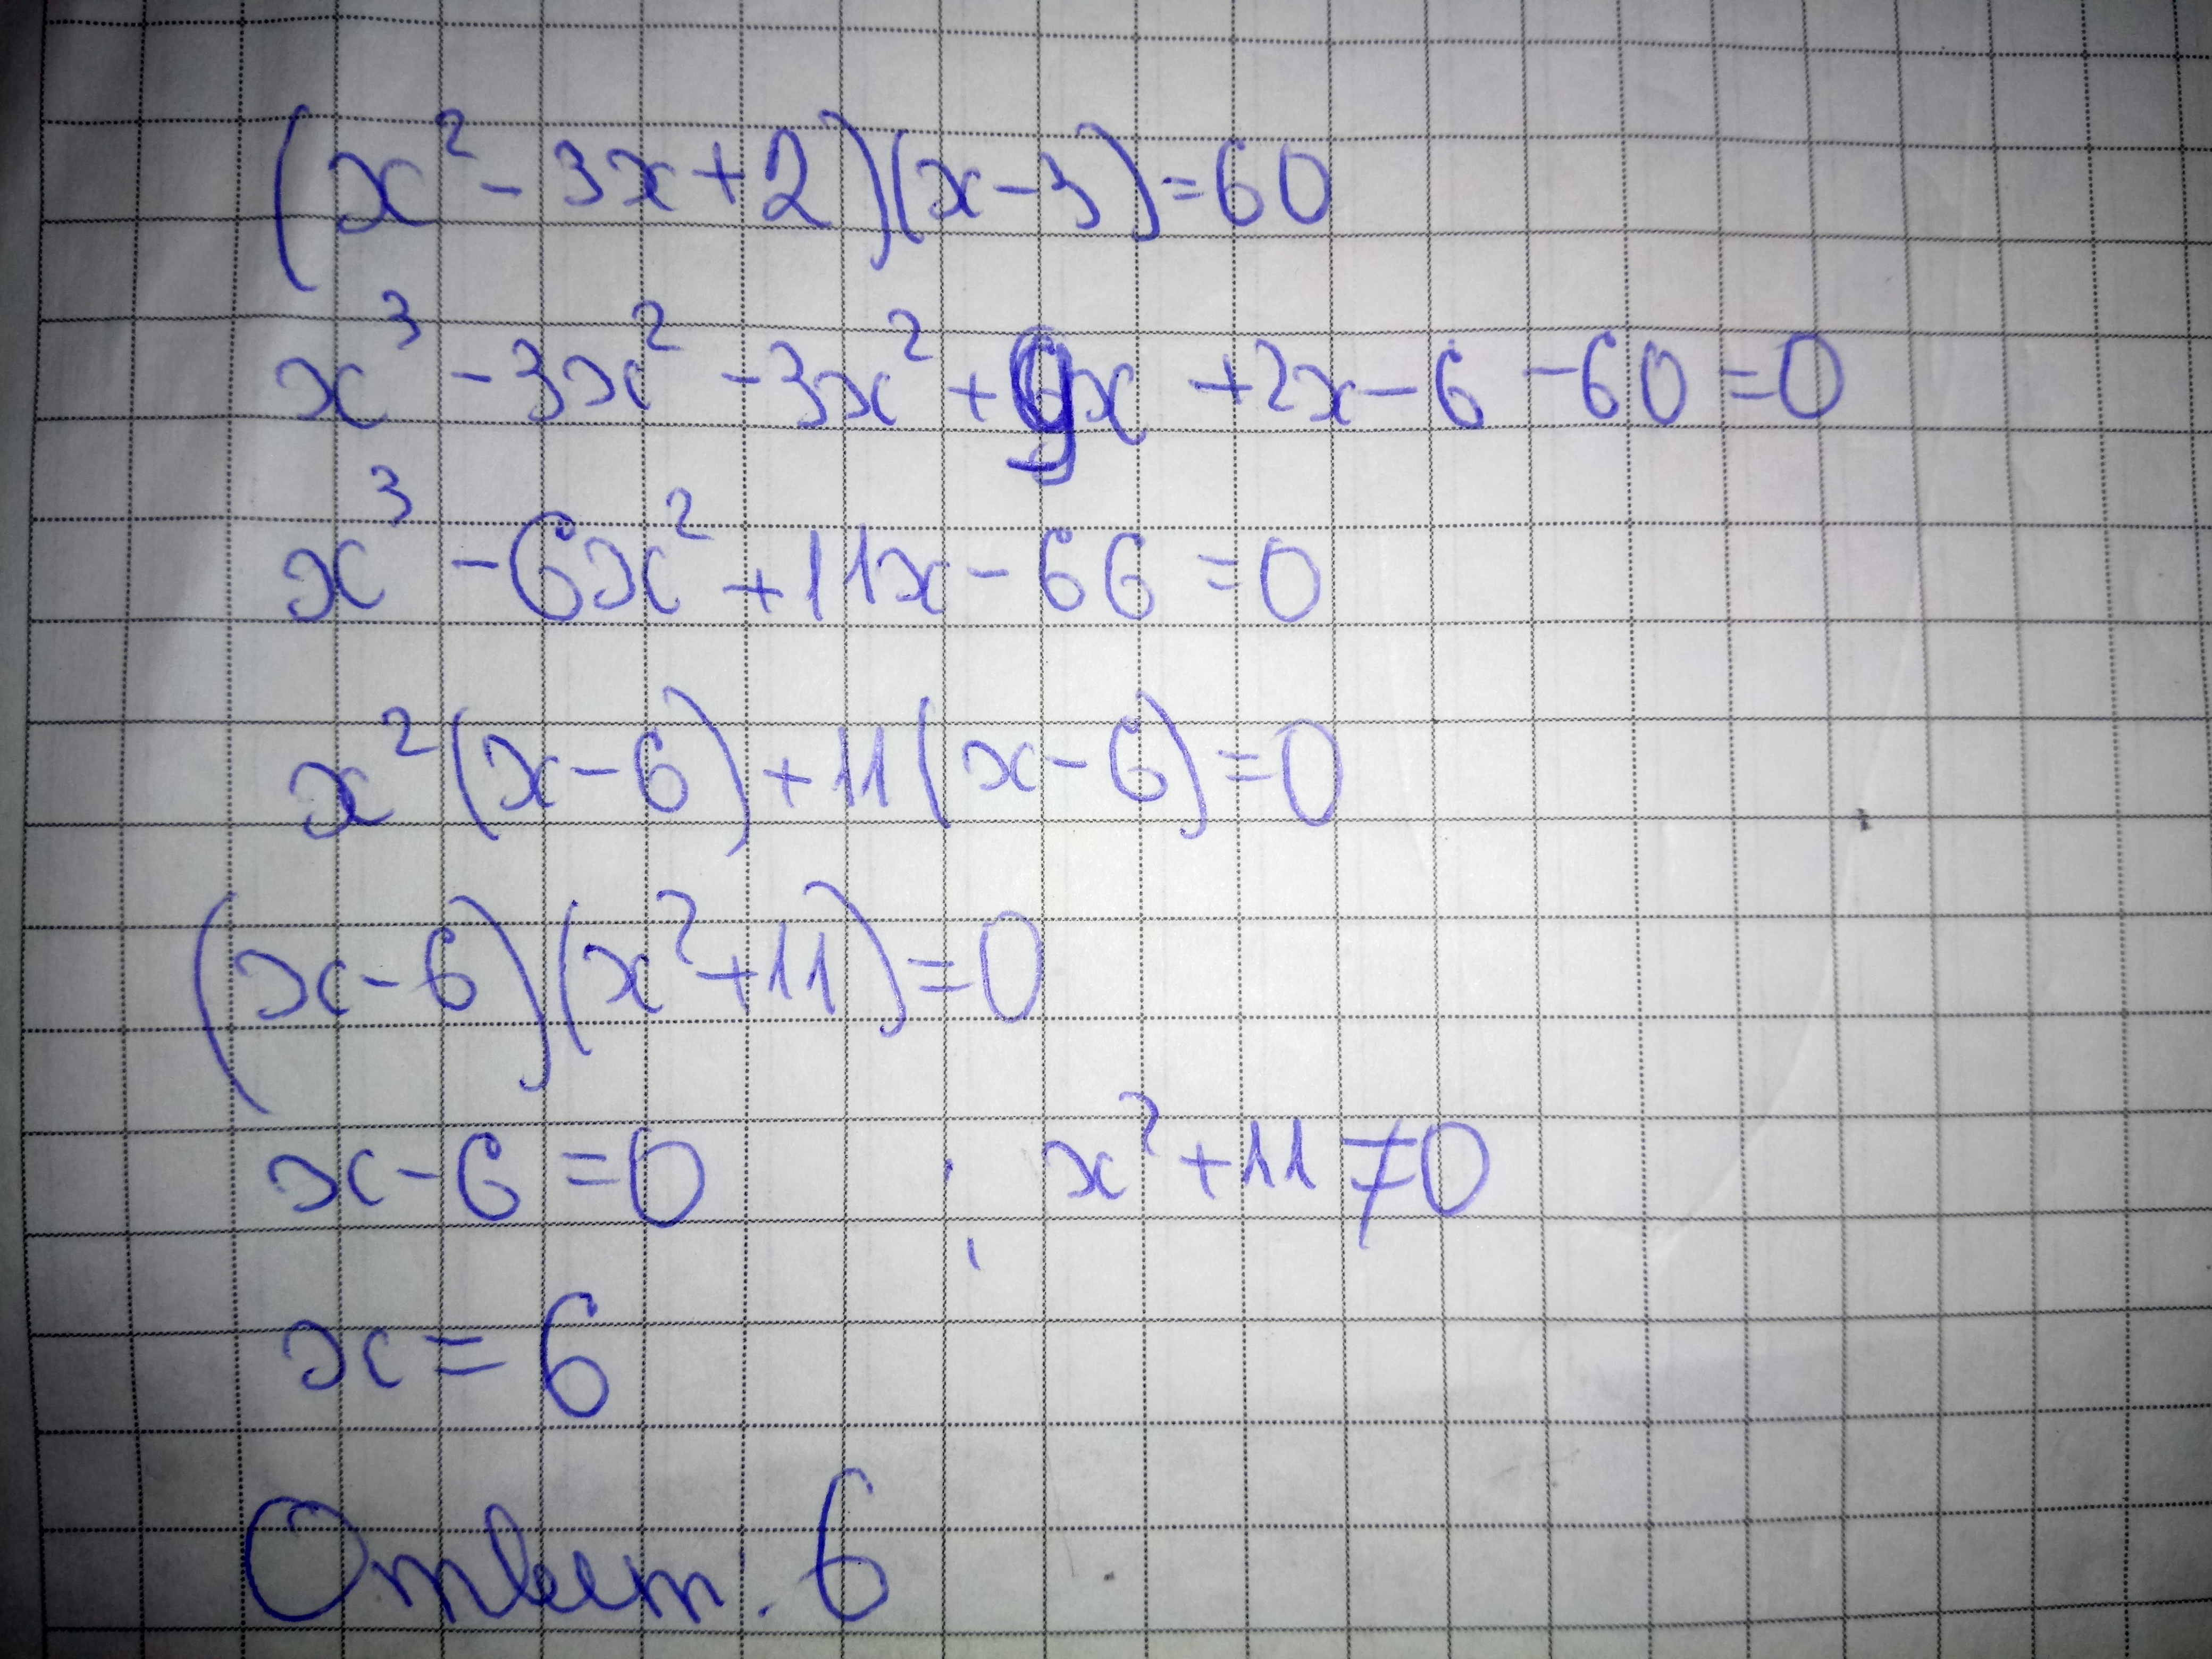 (x² - 3x + 2)(x - 3) = 60
x³ - 3x² - 3x² + 9x + 2x - 6 - 60 = 0
x³ - 6x² + 11x - 66 = 0
x²(x - 6) + 11(x - 6) = 0
(x - 6)(x² + 11) = 0
x - 6 = 0 ; x² + 11 ≠ 0
x = 6
Ответ. 6